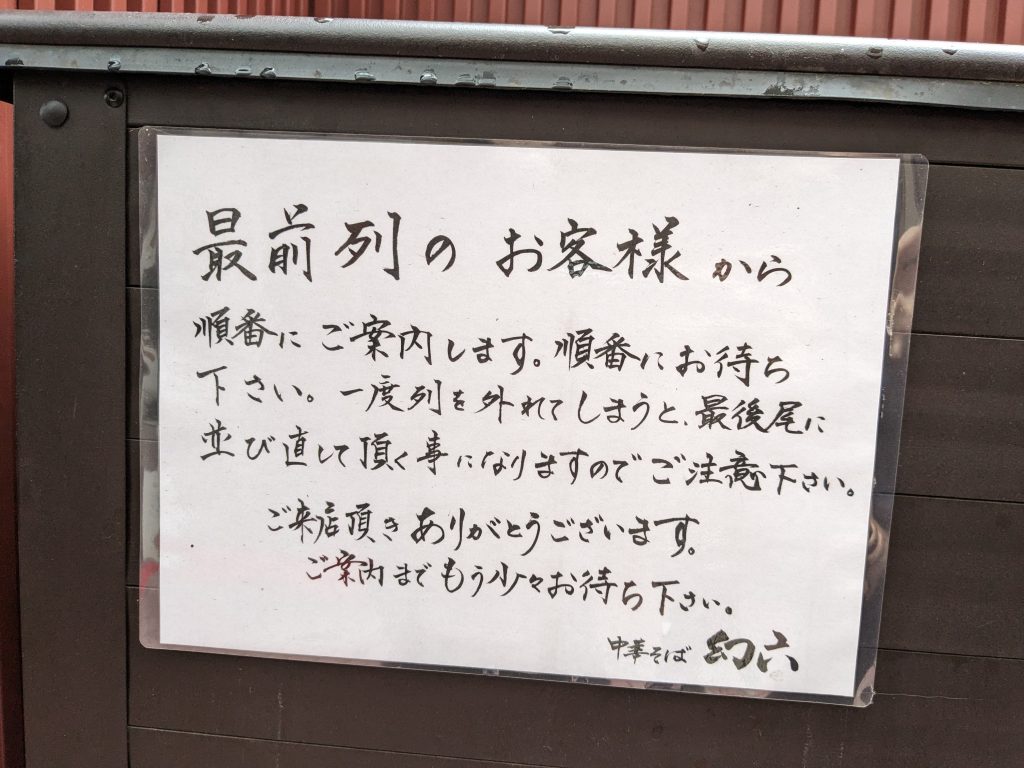 最前列のお客様から
順番にご案内します。順番にお待ち
下さい。一度列を外れてしまうと、最後尾に
並び直して頂く事になりますのでご注意下さい。
ご来店頂きありがとうございます。
ご案内までもう少々お待ち下さい。
中華そば 幻六